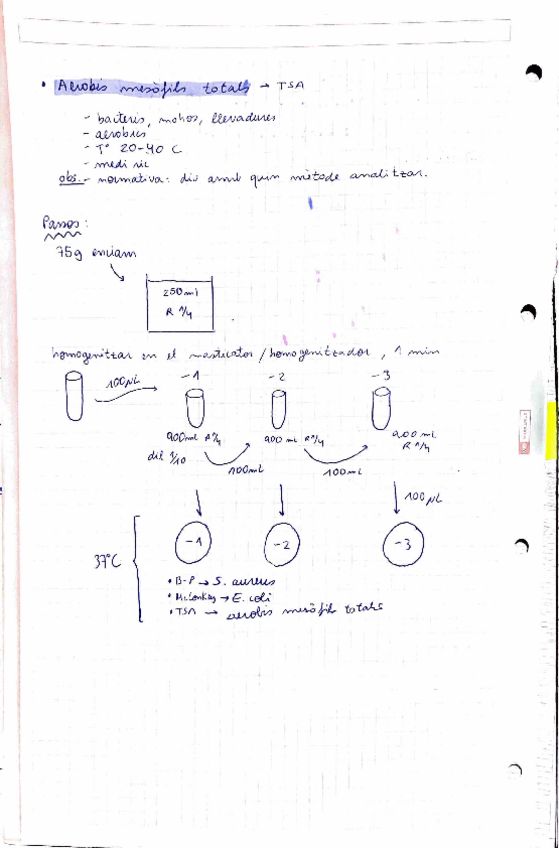 • Aerobis mesòfils totals → TSA
- bacteris, mohos, llevadures
- aerobics
- Tº 20-40 C
- medi ric
obs.- normativa: diu amb quin mètode analitzar.
Passos:
75g enciam
250ml
R 1/4
homogenitzar en el masticator/homogenitzador, 1 min
100µL -1 -2 -3
900ml R 1/4 900 ml R 1/4 900 ml
R 1/4
dil 1/10
100mL 100mL
100µL
37°C -1 -2 -3
• B-P → S. aureus
• McConkey → E. coli
• TSA → aerobis mesòfils totals